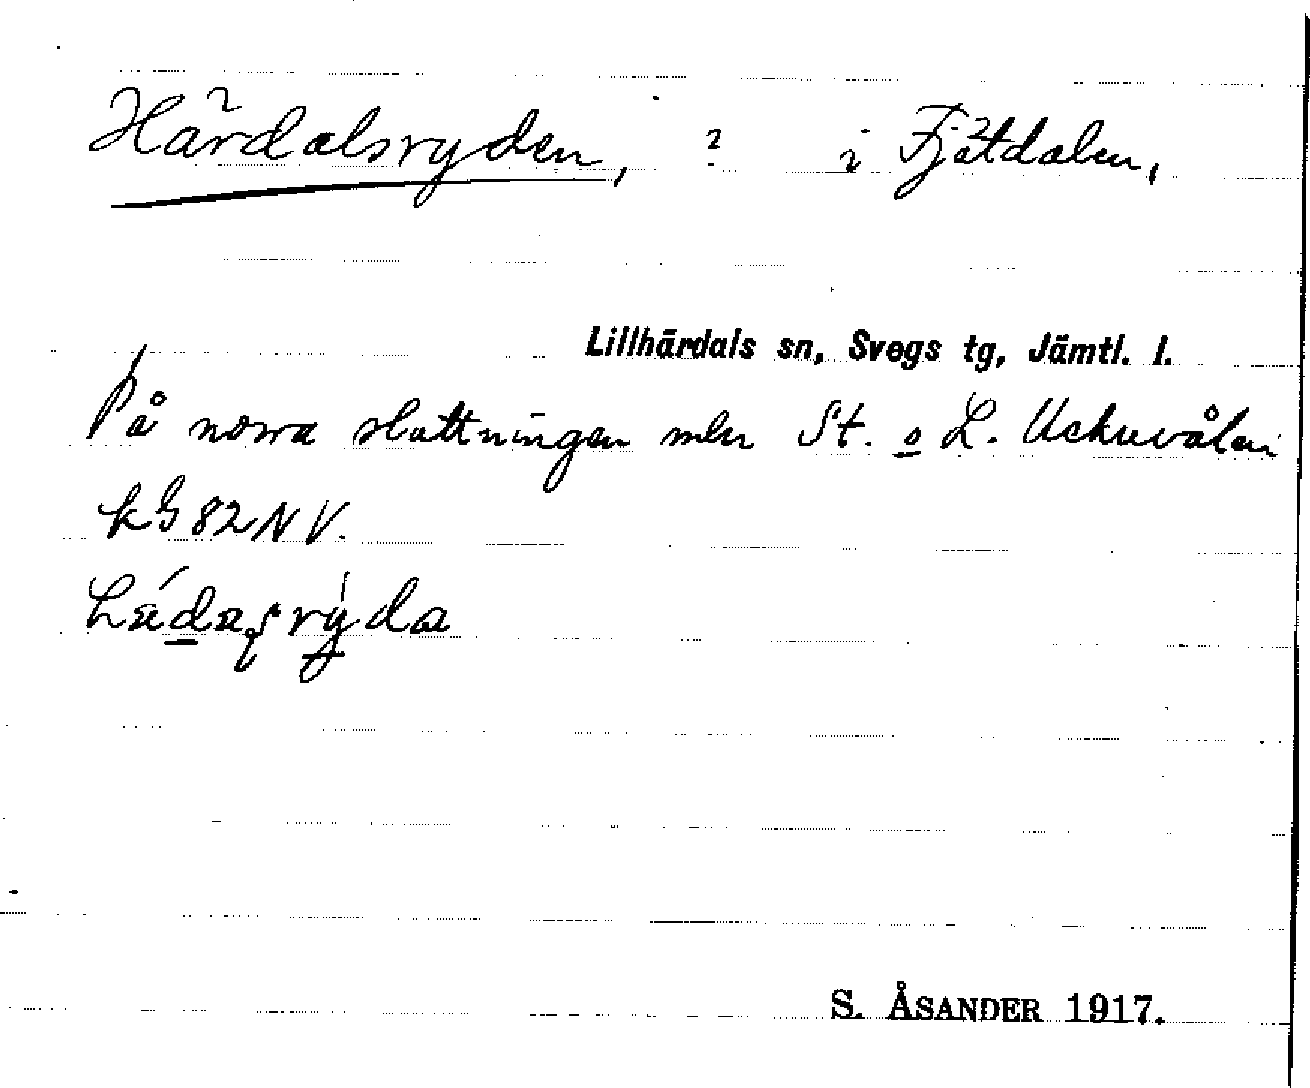 Härdalsryden, ? i Fjätdalen,
Lillhärdals sn, Svegs tg, Jämtl. l.
På norra slattningen mln St. o L. Uckuvålen
kG 82 NV.
rýda
S. ÅSANDER 1917.